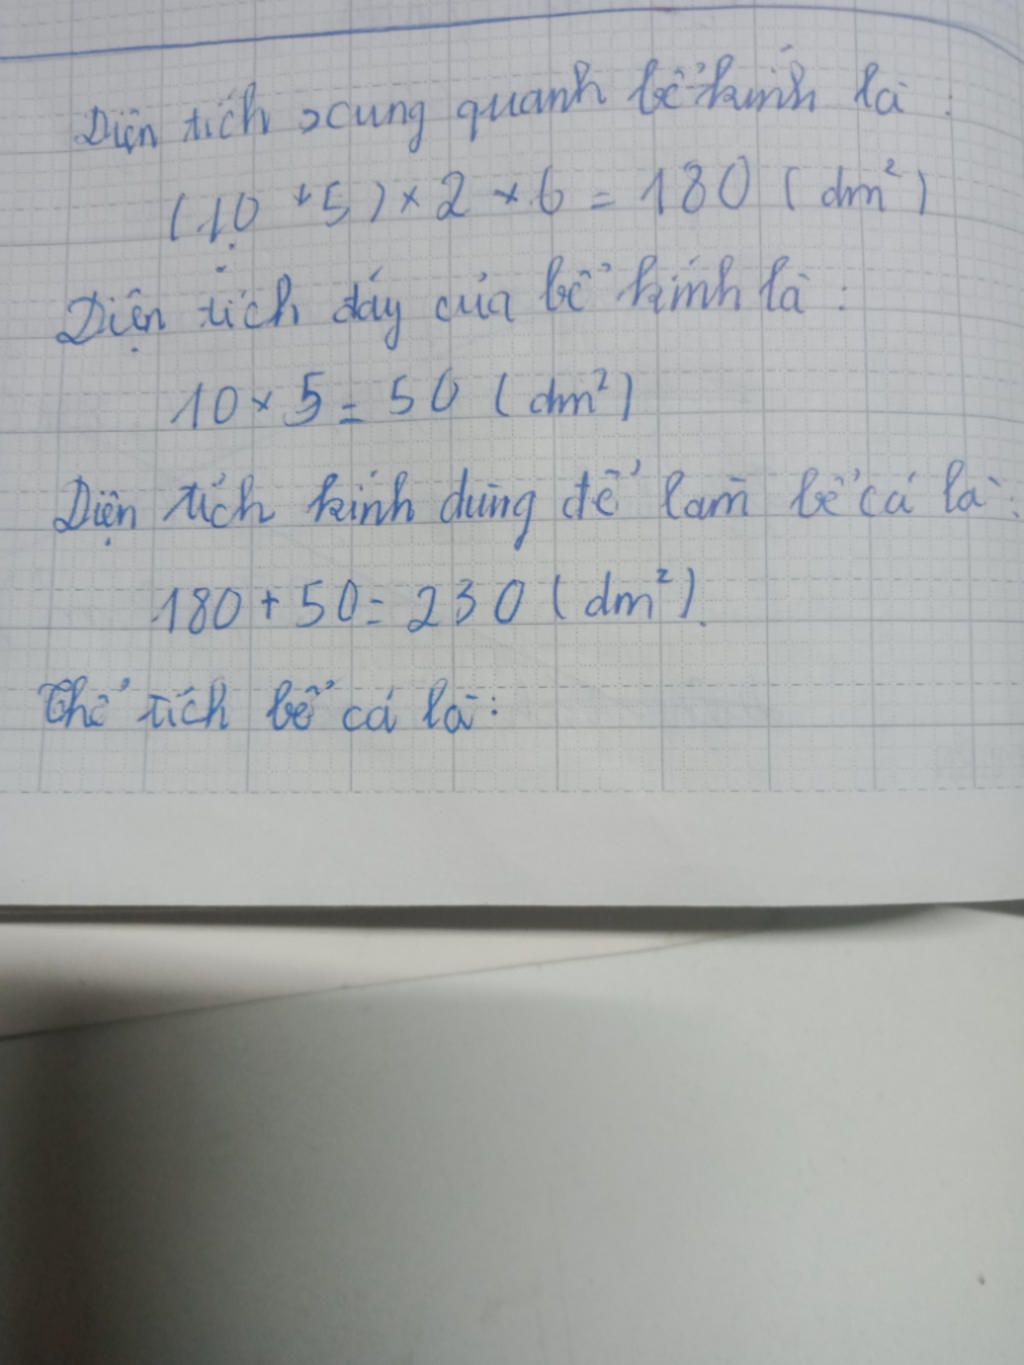 Diện tích xung quanh bể kính là :
(10 + 5) × 2 × 6 = 180 (dm²)
Diện tích đáy của bể kính là :
10 × 5 = 50 (dm²)
Diện tích kính dùng để làm bể cá là :
180 + 50 = 230 (dm²).
Thể tích bể cá là :